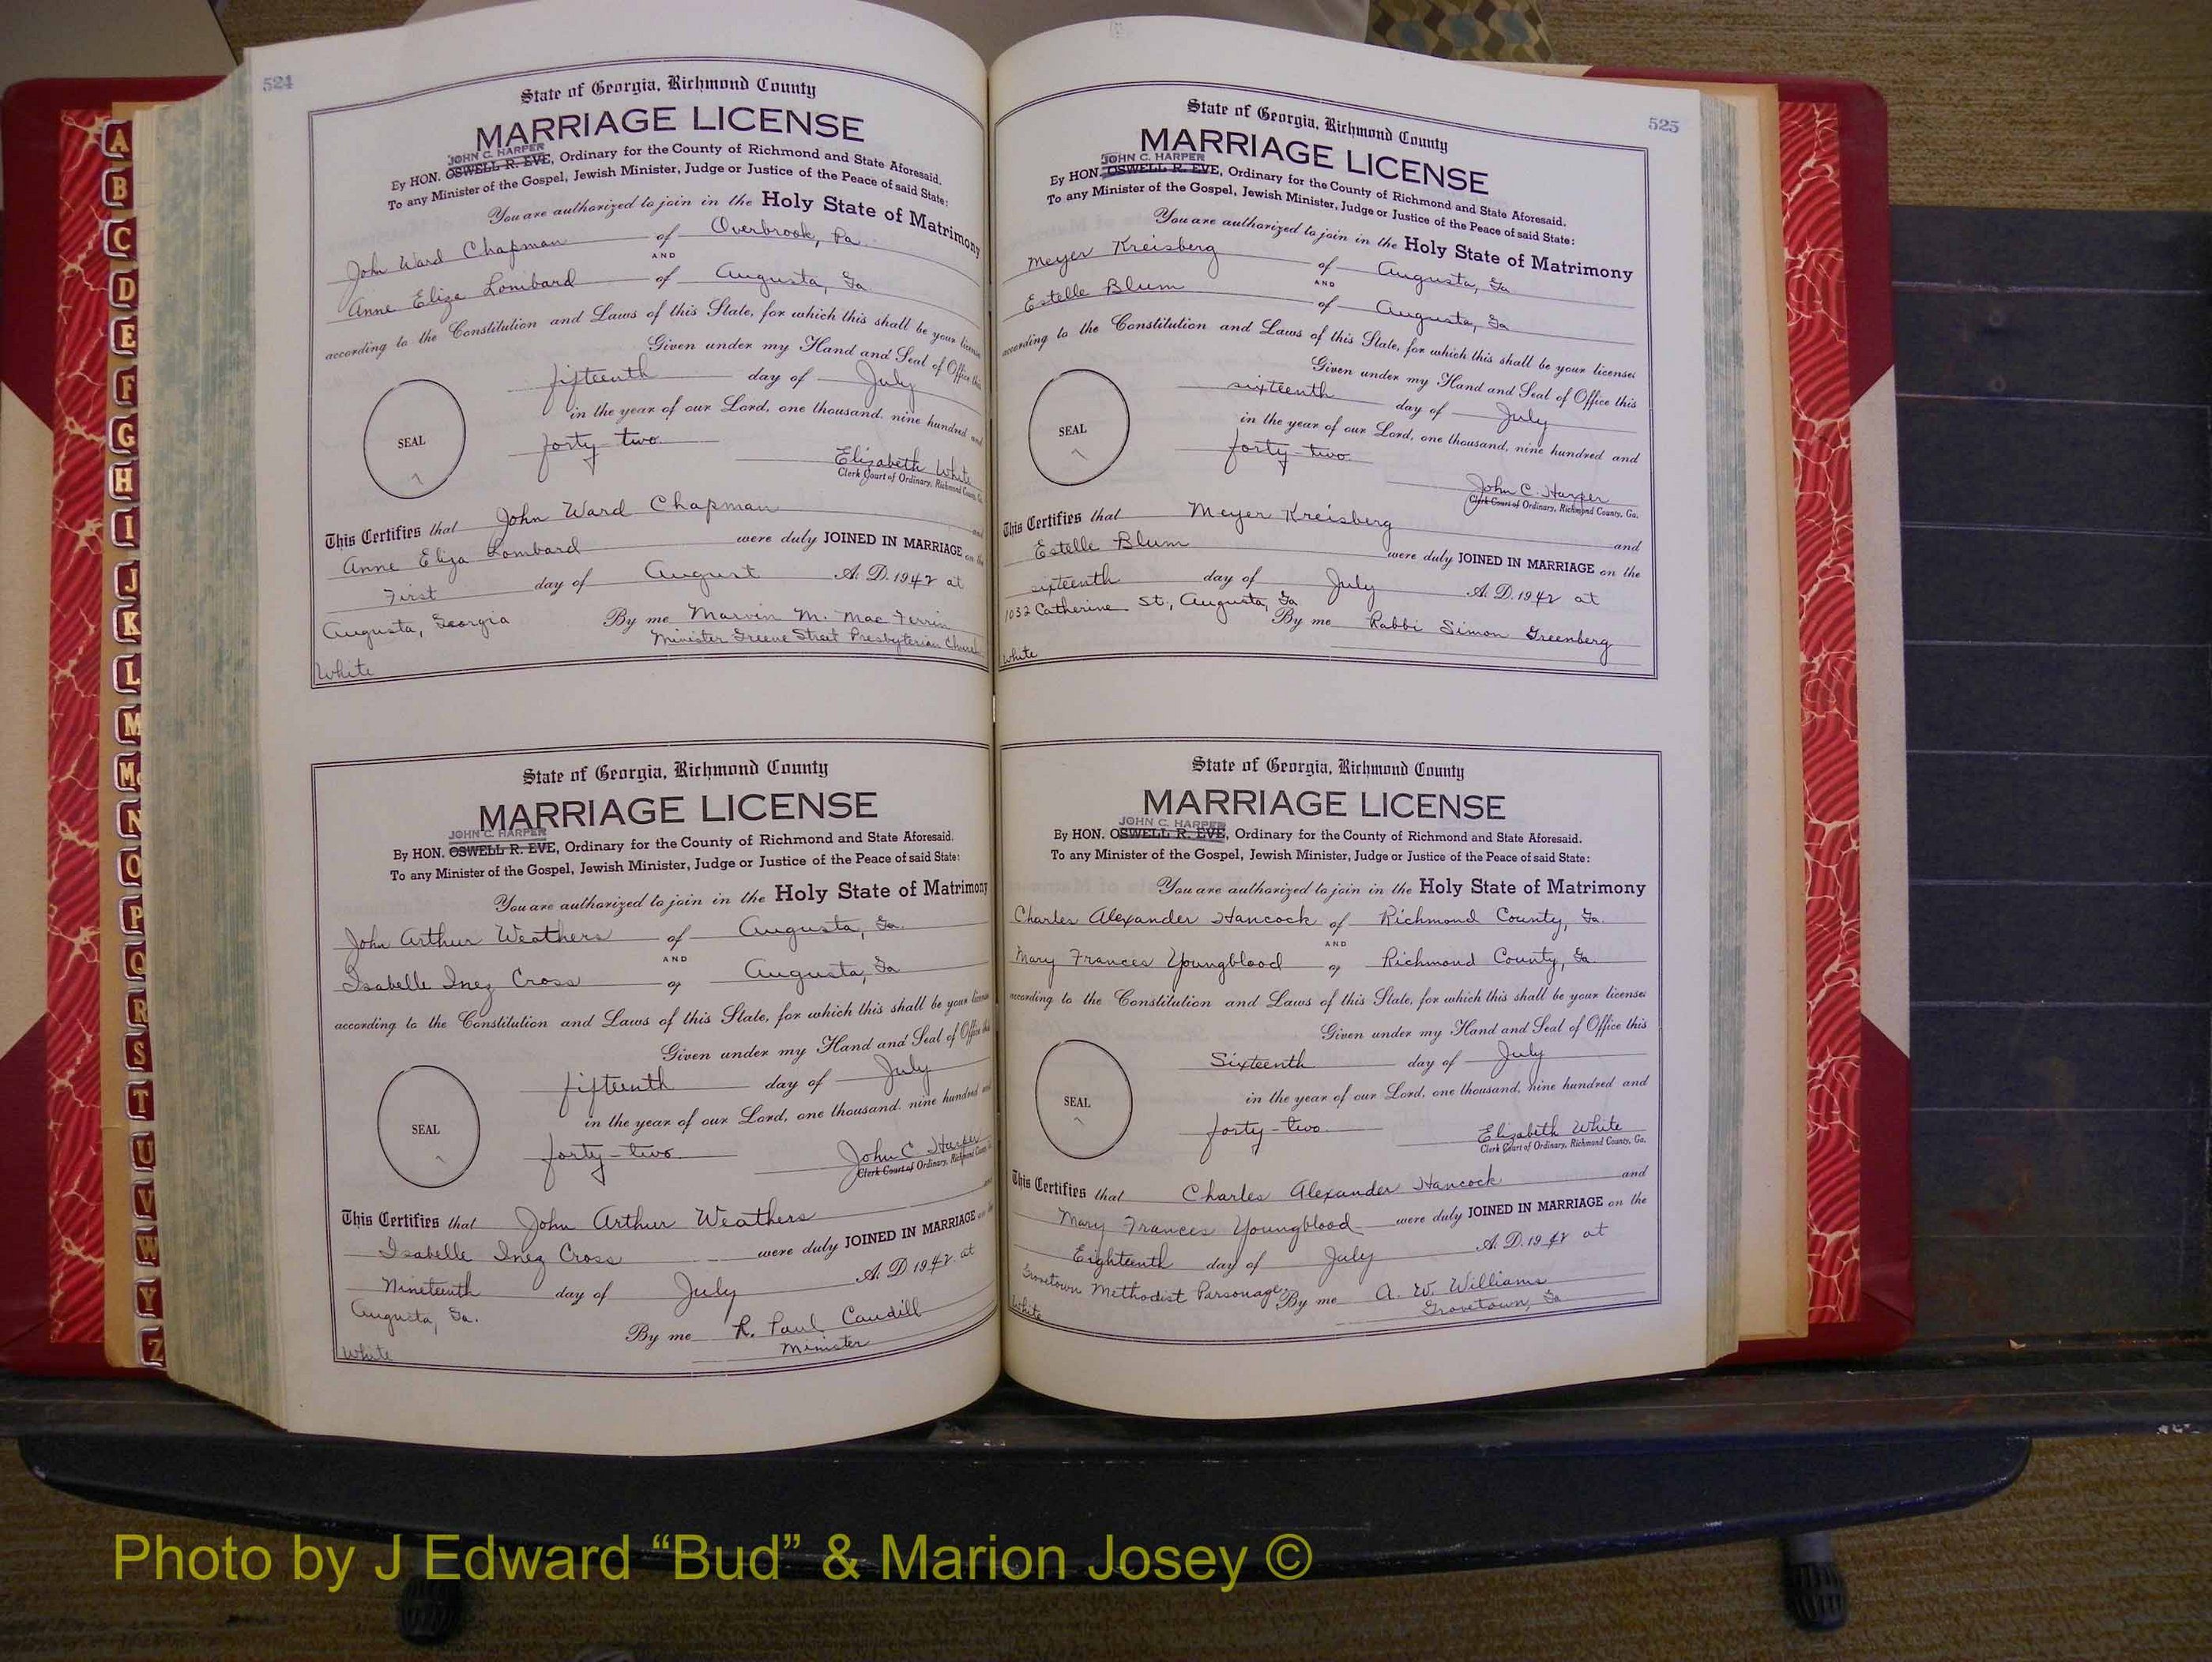 524
State of Georgia, Richmond County
MARRIAGE LICENSE
JOHN C. HARPER
By HON. OSWELL R. EVE, Ordinary for the County of Richmond and State Aforesaid.
To any Minister of the Gospel, Jewish Minister, Judge or Justice of the Peace of said State:
You are authorized to join in the Holy State of Matrimony
John Ward Chapman of Overbrook, Pa.
AND
Anne Eliza Lombard of Augusta, Ga.
according to the Constitution and Laws of this State, for which this shall be your license
Given under my Hand and Seal of Office this
fifteenth day of July
in the year of our Lord, one thousand, nine hundred and
forty-two
SEAL
Elizabeth White
Clerk Court of Ordinary, Richmond County, Ga.
This Certifies that John Ward Chapman and
Anne Eliza Lombard were duly JOINED IN MARRIAGE on the
First day of August A. D. 1942 at
Augusta, Georgia By me Marvin M. MacFerrin
Minister Greene Street Presbyterian Church
White
State of Georgia, Richmond County
MARRIAGE LICENSE
JOHN C. HARPER
By HON. OSWELL R. EVE, Ordinary for the County of Richmond and State Aforesaid.
To any Minister of the Gospel, Jewish Minister, Judge or Justice of the Peace of said State:
You are authorized to join in the Holy State of Matrimony
John Arthur Weathers of Augusta, Ga.
AND
Isabelle Inez Cross of Augusta, Ga
according to the Constitution and Laws of this State, for which this shall be your license
Given under my Hand and Seal of Office this
fifteenth day of July
in the year of our Lord, one thousand, nine hundred and
forty-two
SEAL
John C. Harper
Clerk Court of Ordinary, Richmond County, Ga.
This Certifies that John Arthur Weathers and
Isabelle Inez Cross were duly JOINED IN MARRIAGE on the
Nineteenth day of July A. D. 1942 at
Augusta, Ga.
By me R. Paul Caudill
Minister
White
525
State of Georgia, Richmond County
MARRIAGE LICENSE
JOHN C. HARPER
By HON. OSWELL R. EVE, Ordinary for the County of Richmond and State Aforesaid.
To any Minister of the Gospel, Jewish Minister, Judge or Justice of the Peace of said State:
You are authorized to join in the Holy State of Matrimony
Meyer Kreisberg of Augusta, Ga
AND
Estelle Blum of Augusta, Ga
according to the Constitution and Laws of this State, for which this shall be your license:
Given under my Hand and Seal of Office this
sixteenth day of July
in the year of our Lord, one thousand, nine hundred and
forty-two
SEAL
John C. Harper
Clerk Court of Ordinary, Richmond County, Ga.
This Certifies that Meyer Kreisberg and
Estelle Blum were duly JOINED IN MARRIAGE on the
sixteenth day of July A. D. 1942 at
1032 Catherine St., Augusta, Ga
By me Rabbi Simon Greenberg
White
State of Georgia, Richmond County
MARRIAGE LICENSE
JOHN C. HARPER
By HON. OSWELL R. EVE, Ordinary for the County of Richmond and State Aforesaid.
To any Minister of the Gospel, Jewish Minister, Judge or Justice of the Peace of said State:
You are authorized to join in the Holy State of Matrimony
Charles Alexander Hancock of Richmond County, Ga.
AND
Mary Frances Youngblood of Richmond County, Ga.
according to the Constitution and Laws of this State, for which this shall be your license:
Given under my Hand and Seal of Office this
Sixteenth day of July
in the year of our Lord, one thousand, nine hundred and
forty-two
SEAL
Elizabeth White
Clerk Court of Ordinary, Richmond County, Ga.
This Certifies that Charles Alexander Hancock and
Mary Frances Youngblood were duly JOINED IN MARRIAGE on the
Eighteenth day of July A. D. 1942 at
Grovetown Methodist Parsonage. By me A. W. Williams
Grovetown, Ga
White
A
B
C
D
E
F
G
H
I
J
K
L
M
Mc
N
O
P
Q
R
S
T
U
V
W
Y
Z
Photo by J Edward “Bud” & Marion Josey ©